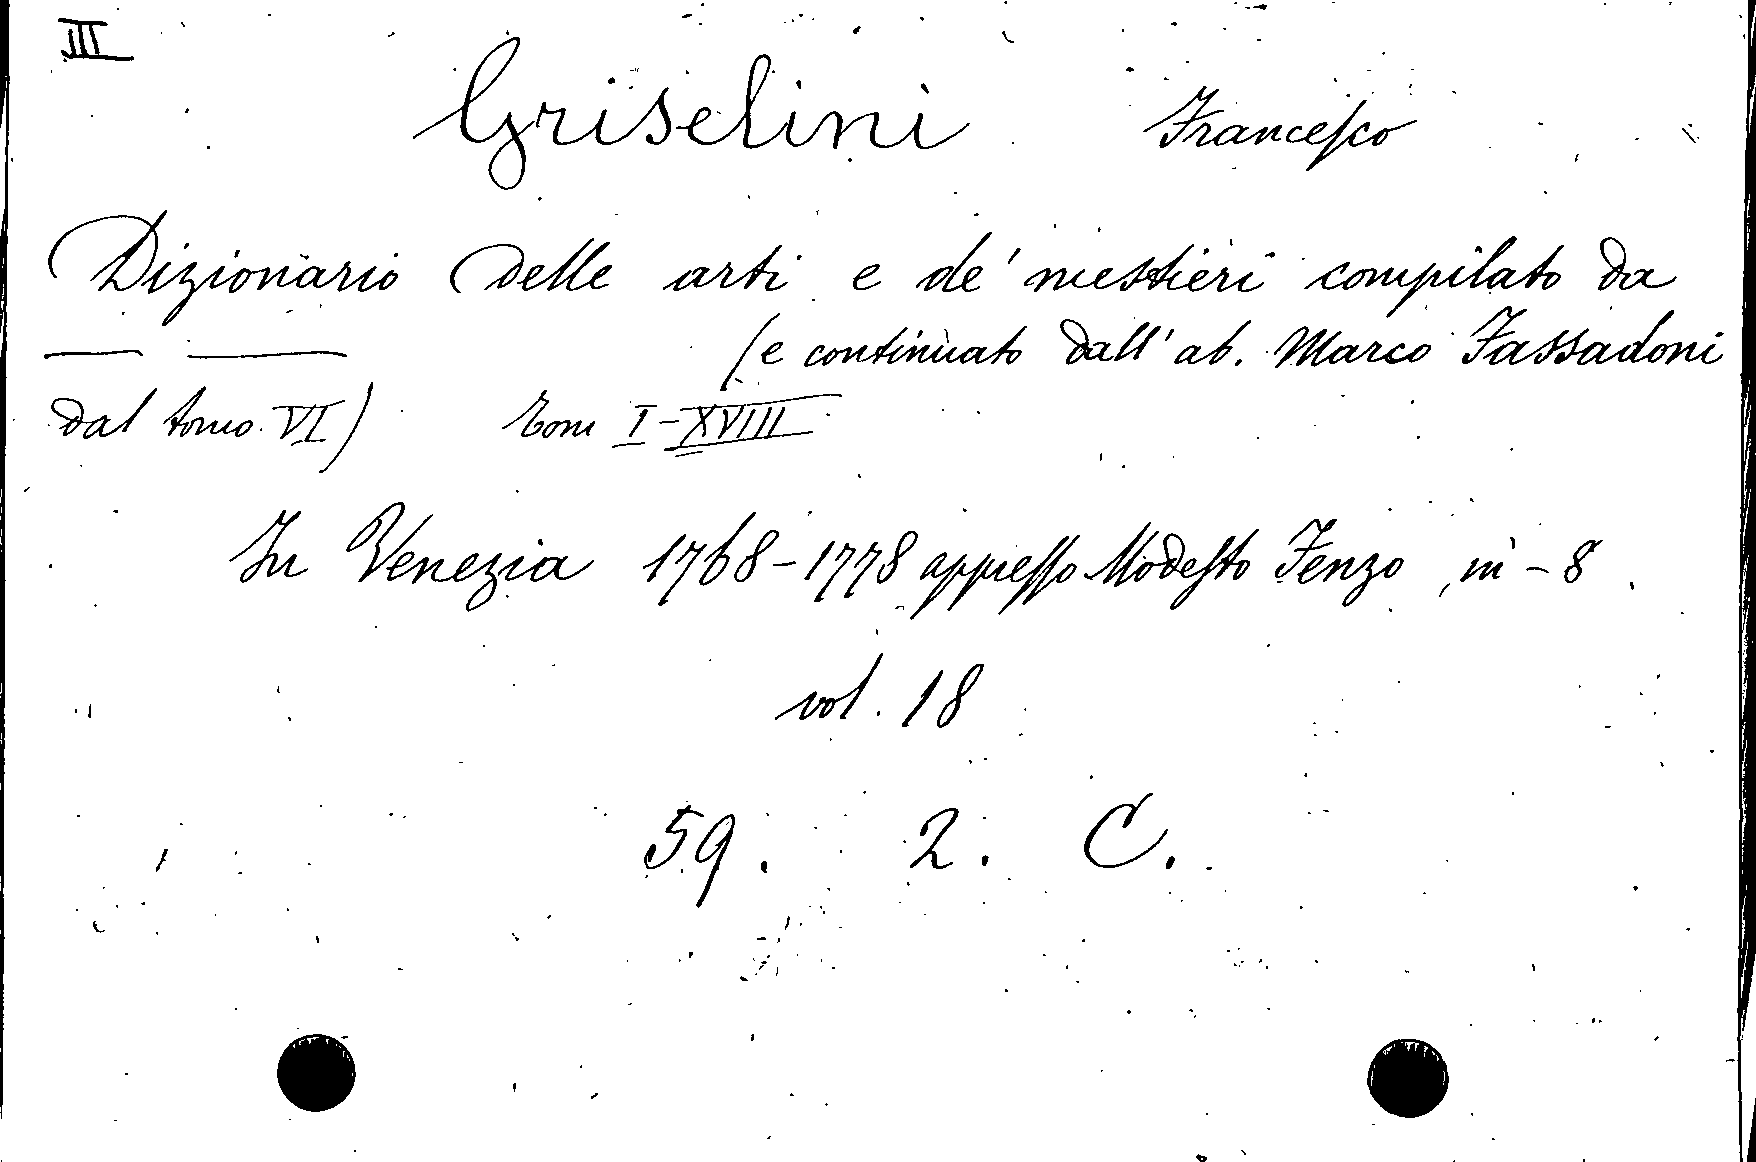 III
Griselini Francesco
Dizionario delle arti e de' mestieri compilato da
— — (e continuato dall' ab. Marco Fassadoni
dal tomo VI) Tom I-XVIII
In Venezia 1768-1778 appresso Modesto Fenzo, in-8.
vol. 18
59. 2. C.